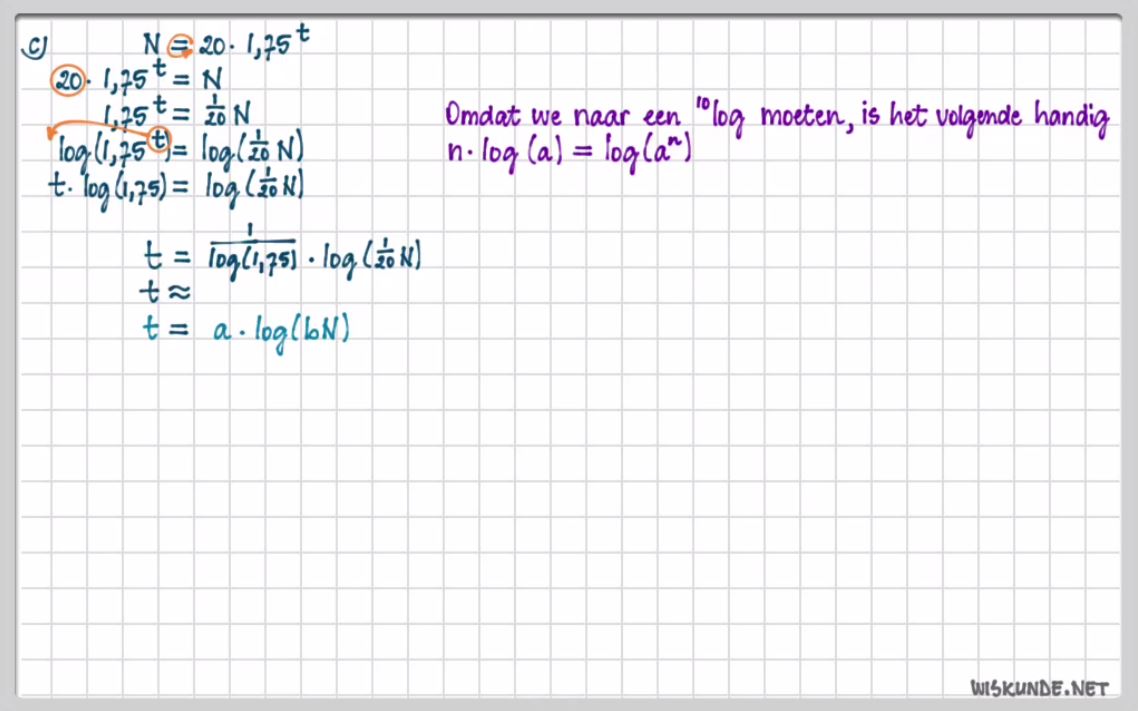 c) N = 20 · 1,75^t
20 · 1,75^t = N
1,75^t = 1/20 N
log(1,75^t) = log(1/20 N)
t · log(1,75) = log(1/20 N)
t = 1/log(1,75) · log(1/20 N)
t ≈
t = a · log(bN)
Omdat we naar een ¹⁰log moeten, is het volgende handig
n · log(a) = log(a^n)
WISKUNDE.NET